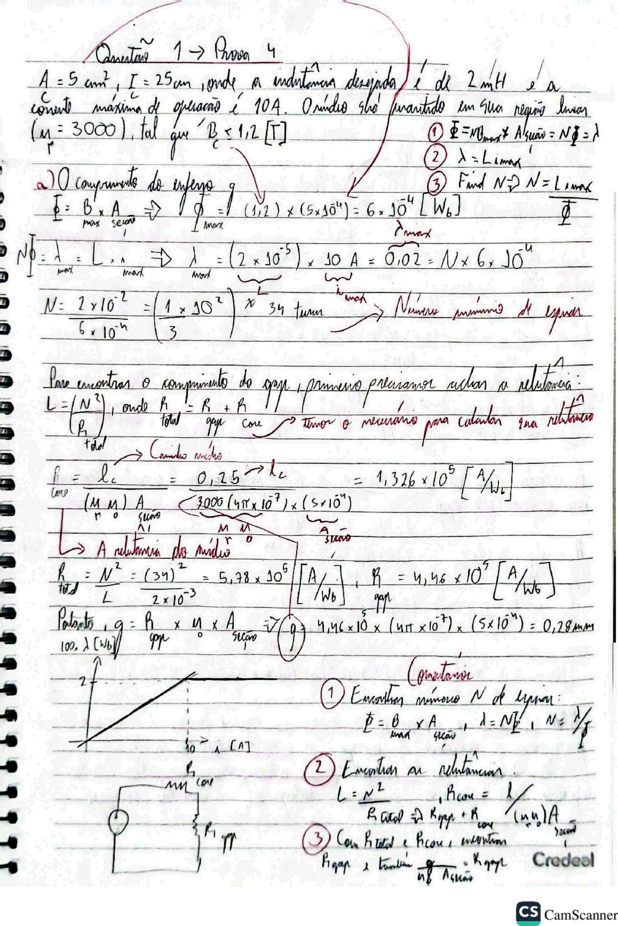 Questão 1 → Prova 4
A = 5 cm², l_c = 25 cm, onde a indutância desejada é de 2 mH e a
corrente máxima de operação é 10A. O núcleo em sua região linear
(μ_r = 3000), tal que B_c < 1,2 [T]
① Φ = NB_max × A_seção = NΦ = λ
② λ = L i_max
③ Find N => N = L i_max / Φ
a) O comprimento do g
Φ_max = B_max × A_seção => Φ_max = (1,2) × (5×10⁻⁴) = 6 × 10⁻⁴ [Wb]
NΦ_max = λ_max = L × i_max => λ_max = (2 × 10⁻³) × 10 A = 0,02 = N × 6 × 10⁻⁴
λ_max
L i_max
N = 2 × 10⁻² / 6 × 10⁻⁴ = (1/3 × 10²) ≈ 34 turns → Número mínimo de espiras
Para encontrar o comprimento do gap, primeiro precisamos achar a relutância:
L = (N² / R_total), onde R_total = R_gap + R_core → temos o necessário para calcular sua relutância
→ Caminho médio
R_core = l_c / (μ_r μ_0) A_seção = 0,25 / 3000 (4π × 10⁻⁷) × (5×10⁻⁴) = 1,326 × 10⁵ [A/Wb]
→ l_c
μ_r μ_0 A_seção
→ A relutância do núcleo
R_total = N² / L = (34)² / 2×10⁻³ = 5,78 × 10⁵ [A/Wb], R_gap = 4,46 × 10⁵ [A/Wb]
Portanto, g = R_gap × μ_0 × A_seção => g = 4,46 × 10⁵ × (4π × 10⁻⁷) × (5×10⁻⁴) = 0,28 mm
100. λ [Wb]
2
10 i [A]
R_core
R_gap
Comentários
① Encontrar número N de espiras:
Φ = B_max × A_seção, λ = NΦ, N = λ/Φ
② Encontrar as relutâncias.
L = N² / R_total => R_gap + R_core, R_core = l / (μ_r μ_0) A_seção
③ Com R_total e R_core, encontrar
R_gap e também g / μ_0 A_seção = R_gap
Credeal
CS CamScanner